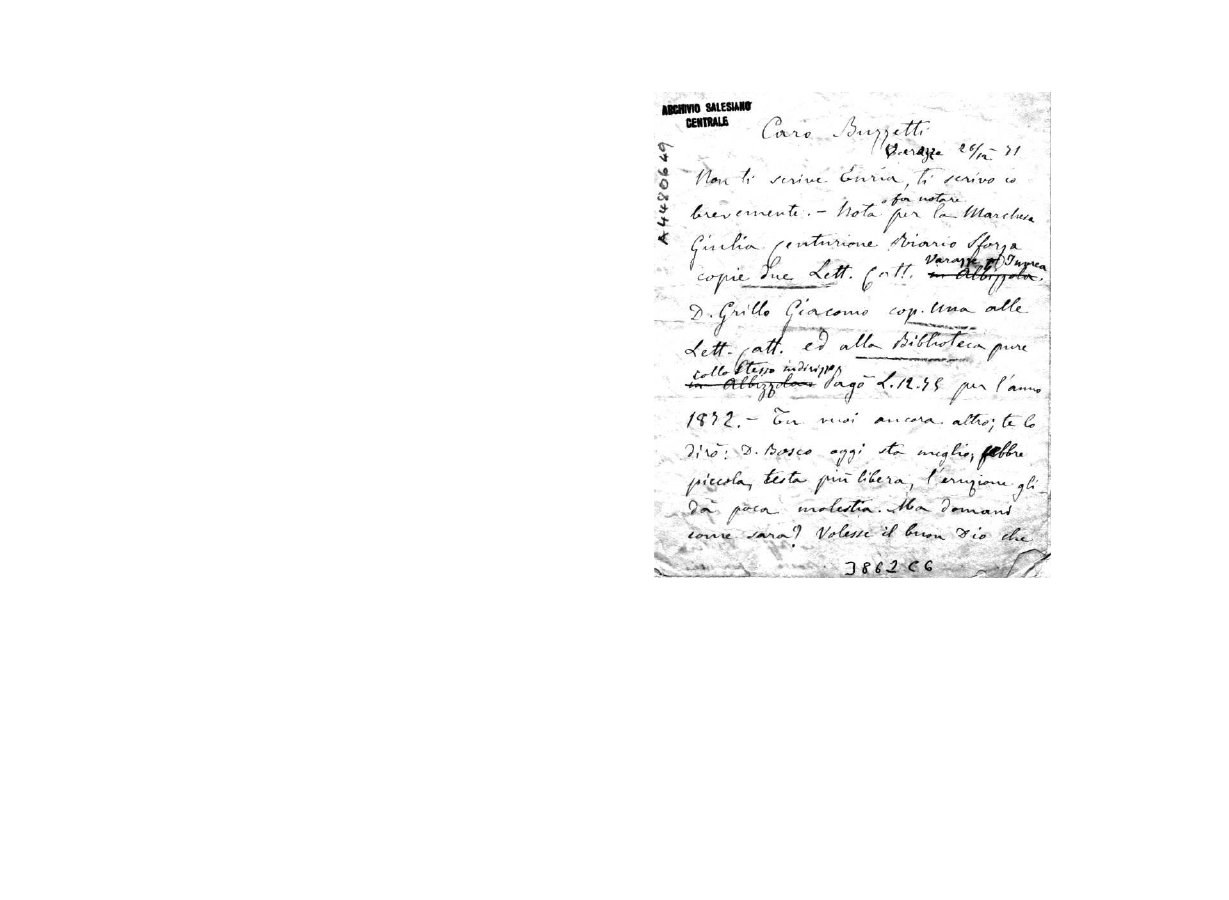 ARCHIVIO SALESIANO
CENTRALE
A4480649
Caro Buzzetti
Varazze 26/12 71
Non ti scrive Enria, ti scrivo io
o fa notare
brevemente. - Nota per la Marchesa
Giulia Centurione Riario Sforza
Varazze p Invrea
copie due Lett. Catt. in Albizzola.
D. Grillo Giacomo cop. una alle
Lett. Catt. ed alla Biblioteca pure
collo stesso indirizzo
in Albizzola Pagò L. 12.75 per l'anno
1872. - Tu vuoi ancora altro; te lo
dirò: D. Bosco oggi sta meglio, febbre
piccola, testa più libera, l'eruzione gli
dà poca molestia. Ma domani
come sarà? Volesse il buon Dio che
3862 C6